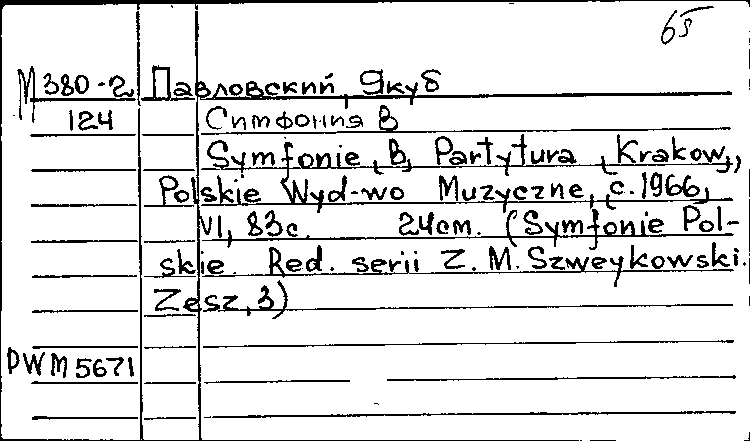 65
М 380-2 Павловский, Якуб
124 Симфония B
Symfonie [B] Partytura [Krakow],
Polskie Wyd-wo Muzyczne, [c.1966]
VI, 83с. 24см. (Symfonie Pol-
skie. Red. serii Z. M. Szweykowski.
Zesz, 3)
PWM 5671